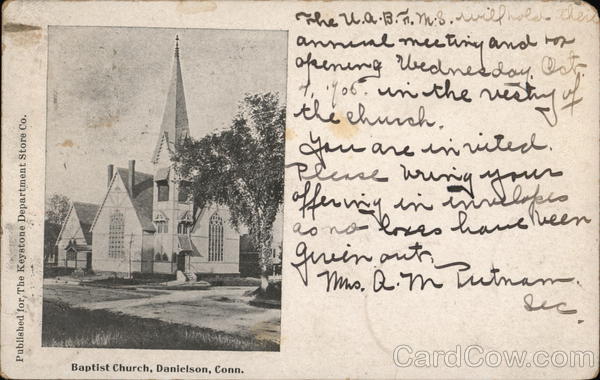 The W.A.B.F.M.S. will hold their
annual meeting and box
opening Wednesday, Oct
4, 1905. in the vestry of
the church.
You are invited.
Please bring your
offering in invelopes
as no boxes have been
given out.
Mrs. A. M. Putnam.
Sec.
Published for The Keystone Department Store Co.
Baptist Church, Danielson, Conn.
CardCow.com